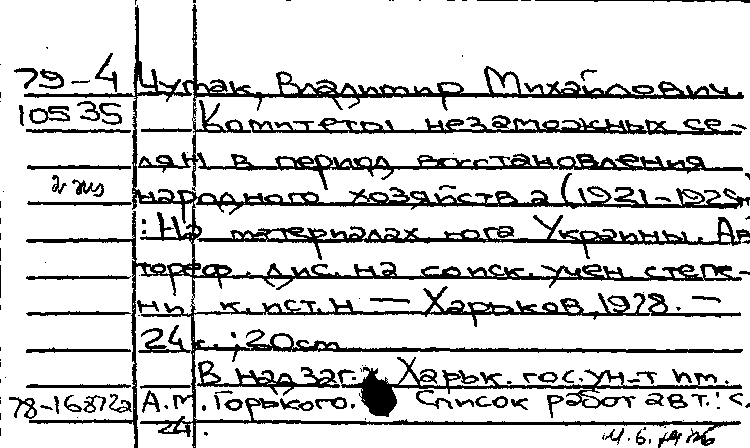 79-4 Чумак, Владимир Михайлович.
10535 Комитеты незаможных се-
лян в период восстановления
2 экз народного хозяйства (1921-1925)
: На материалах юга Украины. Ав
тореф. дис. на соиск. учен. степе-
ни к. ист. н — Харьков, 1978. —
24 с.; 20см
В надзаг.: Харьк. гос. ун-т им.
78-16872а А.М. Горького. Список работ авт.: с.
24.